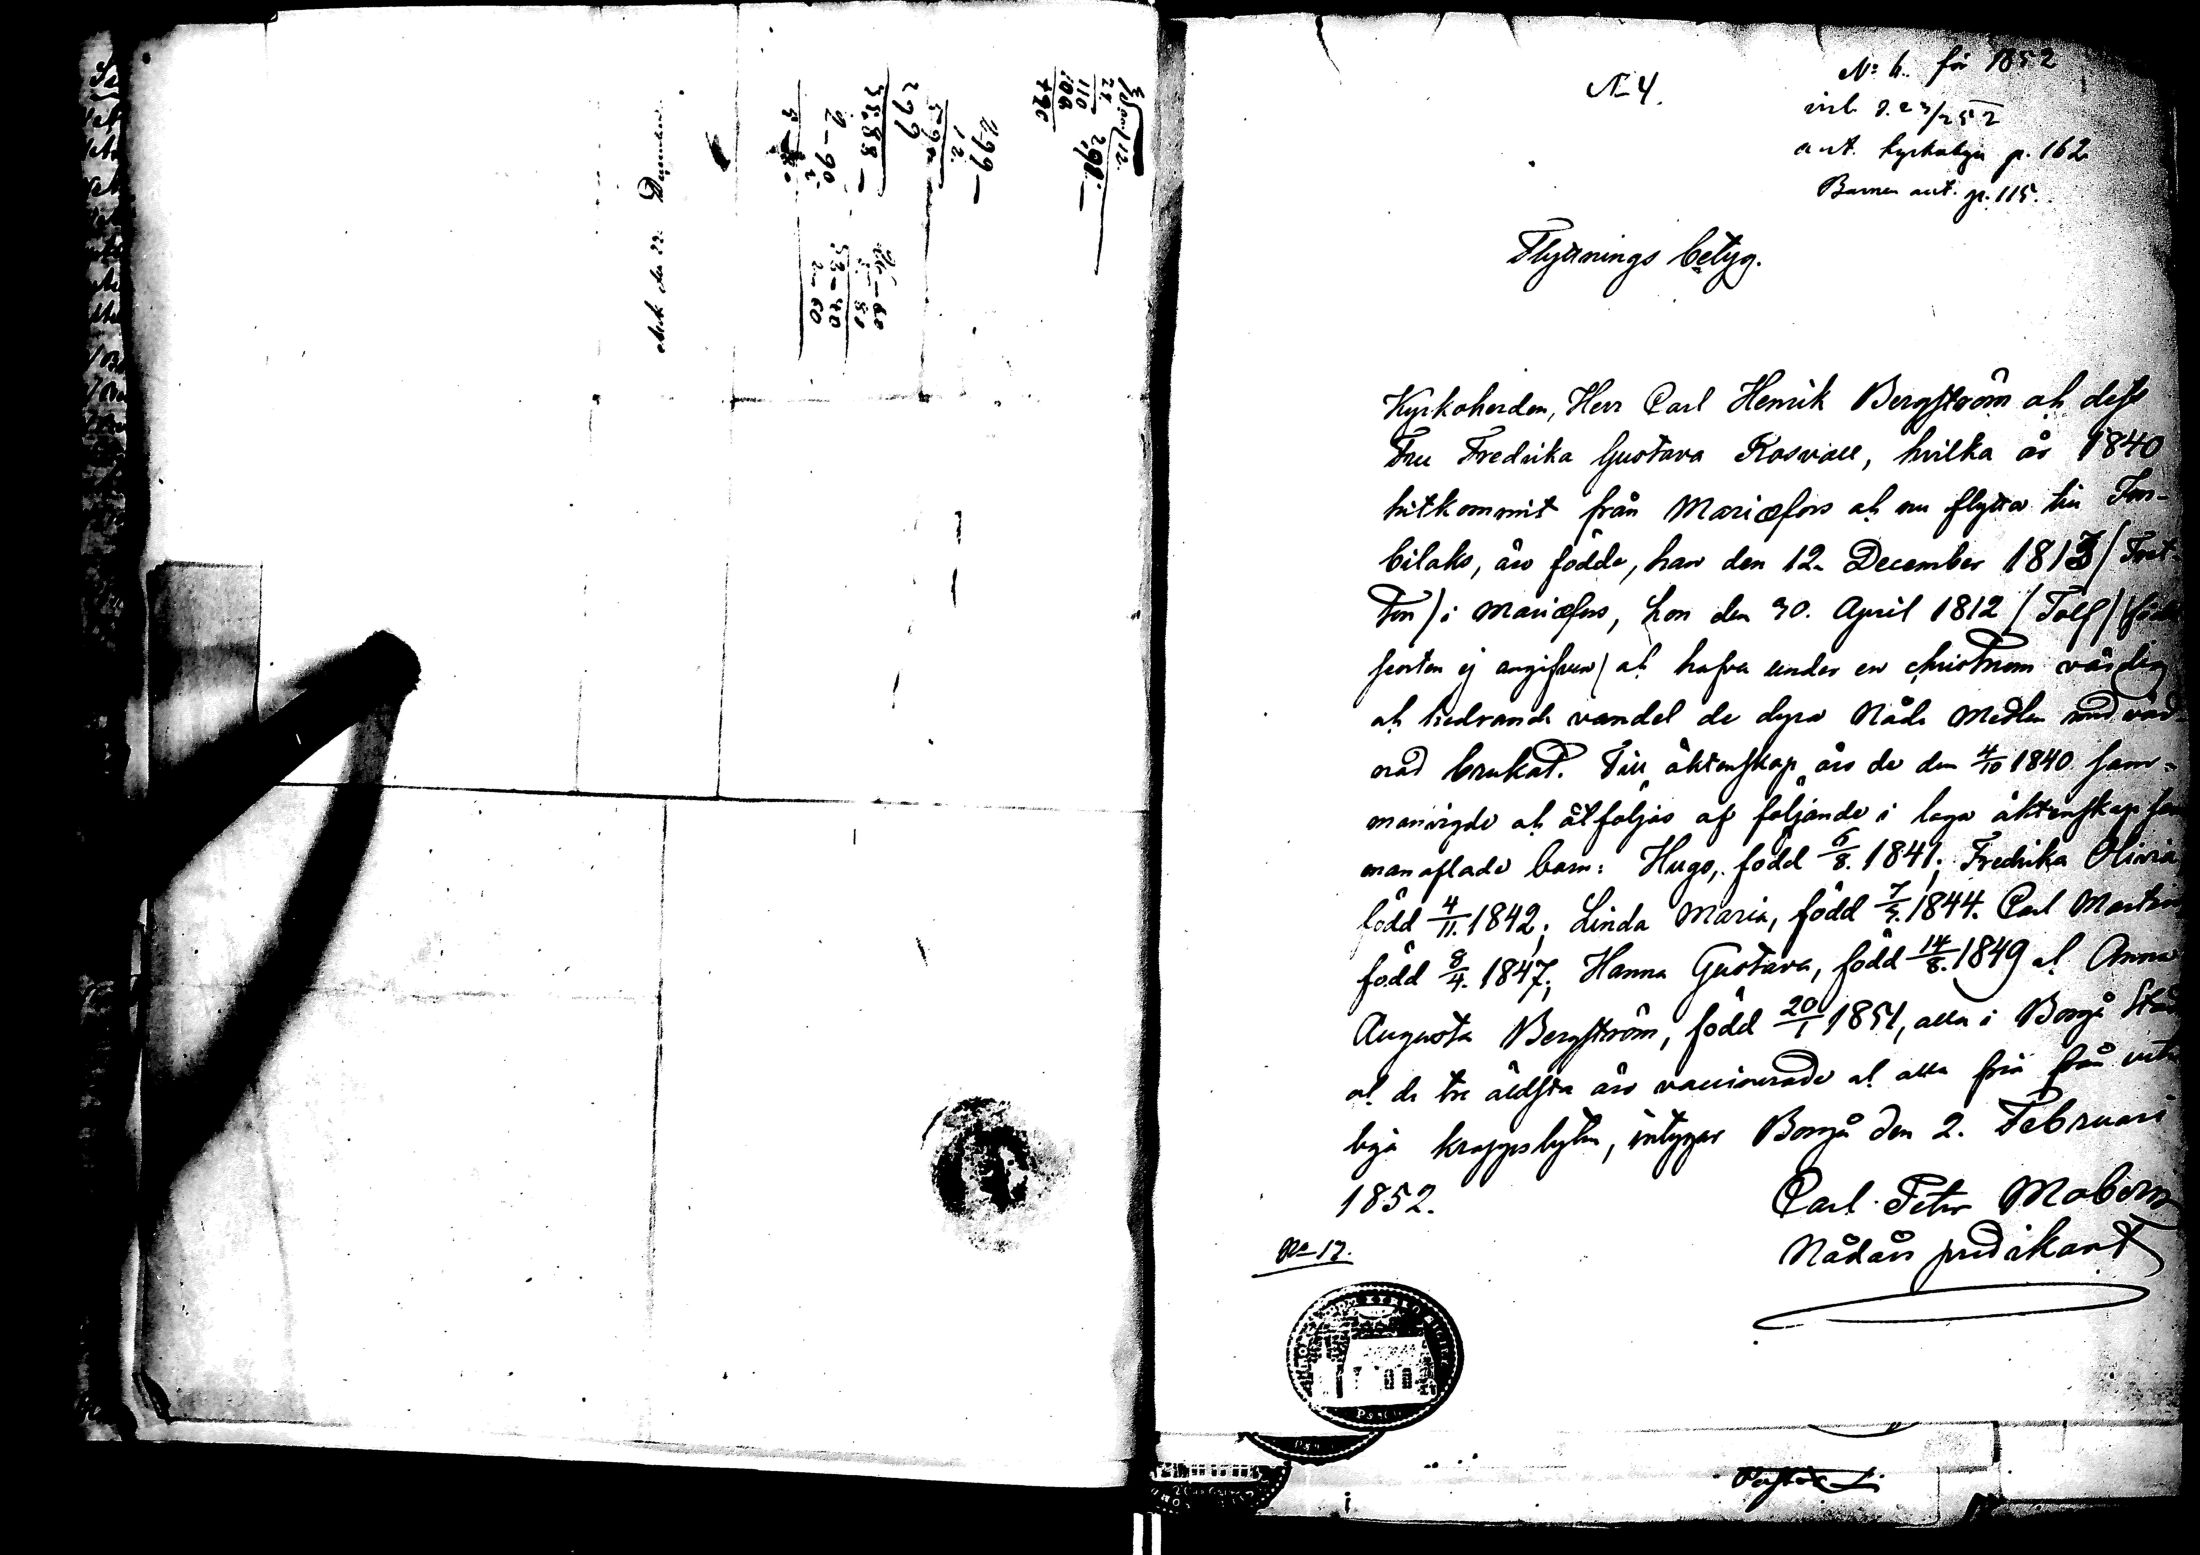 N 4.
No 6. för 1852
inl. d. 23/2 52
ant. Kyrkobyn p. 162
Barnen ant. p. 115.
Flyttnings betyg.
Kyrkoherden, Herr Carl Henrik Bergström och dess
Fru Fredrika Gustava Rosvall, hvilka år 1840
hitkommit från Mariæfors och nu flytta till Im-
bilaks, äro födde, han den 12 December 1813 / Tret-
ton / i Mariæfors, hon den 30. April 1812 / Tolf /
orten ej angifven / och hafva under en christnom värdig
och hedrande vandel de dyra Nåde Medlen med vörd
nad brukat. Till äktenskap äro de den 4/10 1840 sam-
manvigde och åtföljas af följande i laga äktenskap sam
manaflade barn: Hugo, född 6/8. 1841; Fredrika Olivia
född 4/11. 1842; Linda Maria, född 7/5. 1844. Carl Martin
född 8/4. 1847; Hanna Gustava, född 14/8. 1849 och Anna
Augusta Bergström, född 20/1 1851, alla i Borgå Stad
och de tre äldsta äro vaccinerade och alla fria från
liga kroppslyten, intygar Borgå den 2. Februari
1852.
Carl Petr Moberg
Nådårs predikant
No 17.
299 —
12.
598
299
3588 —
2 — 90
53 — 40
2 — 60
110